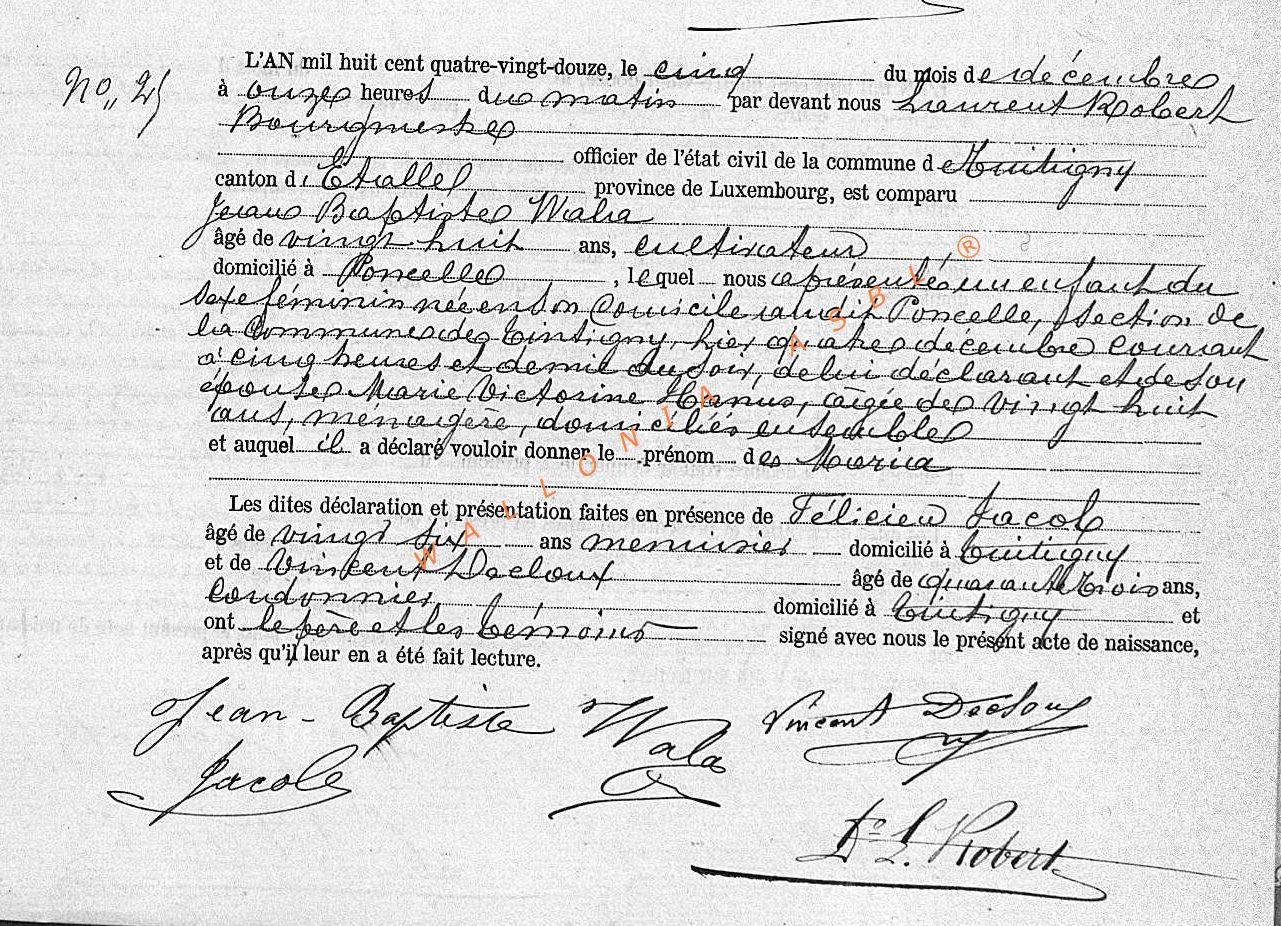 L'AN mil huit cent quatre-vingt-douze, le cinq du mois de décembre
No 25
à onze heures du matin par devant nous Laurent Robert
Bourgmestre
officier de l'état civil de la commune de Tintigny
canton d'Etalle province de Luxembourg, est comparu
Jean Baptiste Wala
âgé de vingt huit ans, cultivateur,
domicilié à Poncelle, lequel nous a présenté un enfant du
sexe féminin né en son domicile audit Poncelle, section de
la Commune de Tintigny, hier quatre décembre courant
à cinq heures et demie du soir, de lui déclarant et de son
épouse Marie Victorine Hanus, âgée de vingt huit
ans, ménagère, domiciliés ensemble
et auquel il a déclaré vouloir donner le prénom de Maria
Les dites déclaration et présentation faites en présence de Félicien Jacob
âgé de vingt six ans menuisier domicilié à Tintigny
et de Vincent Decloux âgé de quarante trois ans,
Cordonnier domicilié à Tintigny et
ont le père et les témoins signé avec nous le présent acte de naissance,
après qu'il leur en a été fait lecture.
Jean-Baptiste Wala Vincent Decloux
Jacob
Dr L. Robert
WALLONIA ASBL ®